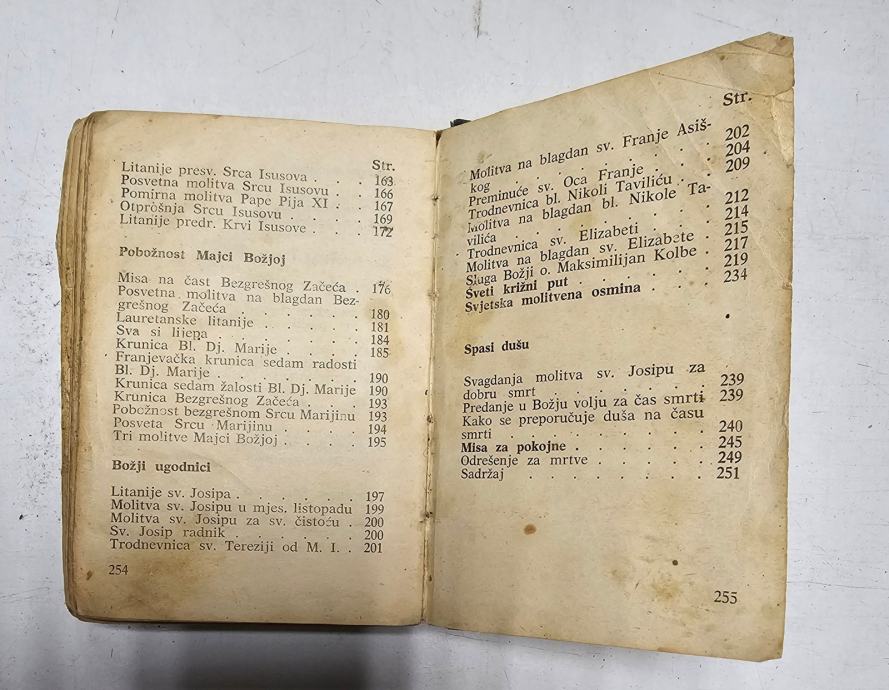 Str.
Litanije presv. Srca Isusova . . . 163
Posvetna molitva Srcu Isusovu . . 166
Pomirna molitva Pape Pija XI . . . 167
Otprošnja Srcu Isusovu . . . . 169
Litanije predr. Krvi Isusove . . . 172
Pobožnost Majci Božjoj
Misa na čast Bezgrešnog Začeća . 176
Posvetna molitva na blagdan Bez-
grešnog Začeća . . . . . 180
Lauretanske litanije . . . . . 181
Sva si lijepa . . . . . . 184
Krunica Bl. Dj. Marije . . . . 185
Franjevačka krunica sedam radosti
Bl. Dj. Marije . . . . . . 190
Krunica sedam žalosti Bl. Dj. Marije 190
Krunica Bezgrešnog Začeća . . . 193
Pobožnost bezgrešnom Srcu Marijinu 193
Posveta Srcu Marijinu . . . . 194
Tri molitve Majci Božjoj . . . . 195
Božji ugodnici
Litanije sv. Josipa . . . . . 197
Molitva sv. Josipu u mjes. listopadu 199
Molitva sv. Josipu za sv. čistoću . 200
Sv. Josip radnik . . . . . . 200
Trodnevnica sv. Tereziji od M. I. . 201
254
Str.
Molitva na blagdan sv. Franje Asiš-
kog . . . . . . . 202
Preminuće sv. Oca Franje . . . 204
Trodnevnica bl. Nikoli Taviliću . . 209
Molitva na blagdan bl. Nikole Ta-
vilića . . . . . . . 212
Trodnevnica sv. Elizabeti . . . 214
Molitva na blagdan sv. Elizabete . 215
Sluga Božji o. Maksimilijan Kolbe . 217
Sveti križni put . . . . . . 219
Svjetska molitvena osmina . . . 234
Spasi dušu
Svagdanja molitva sv. Josipu za
dobru smrt . . . . . . 239
Predanje u Božju volju za čas smrti 239
Kako se preporučuje duša na času
smrti . . . . . . . 240
Misa za pokojne . . . . . . 245
Odrešenje za mrtve . . . . . 249
Sadržaj . . . . . . . 251
255